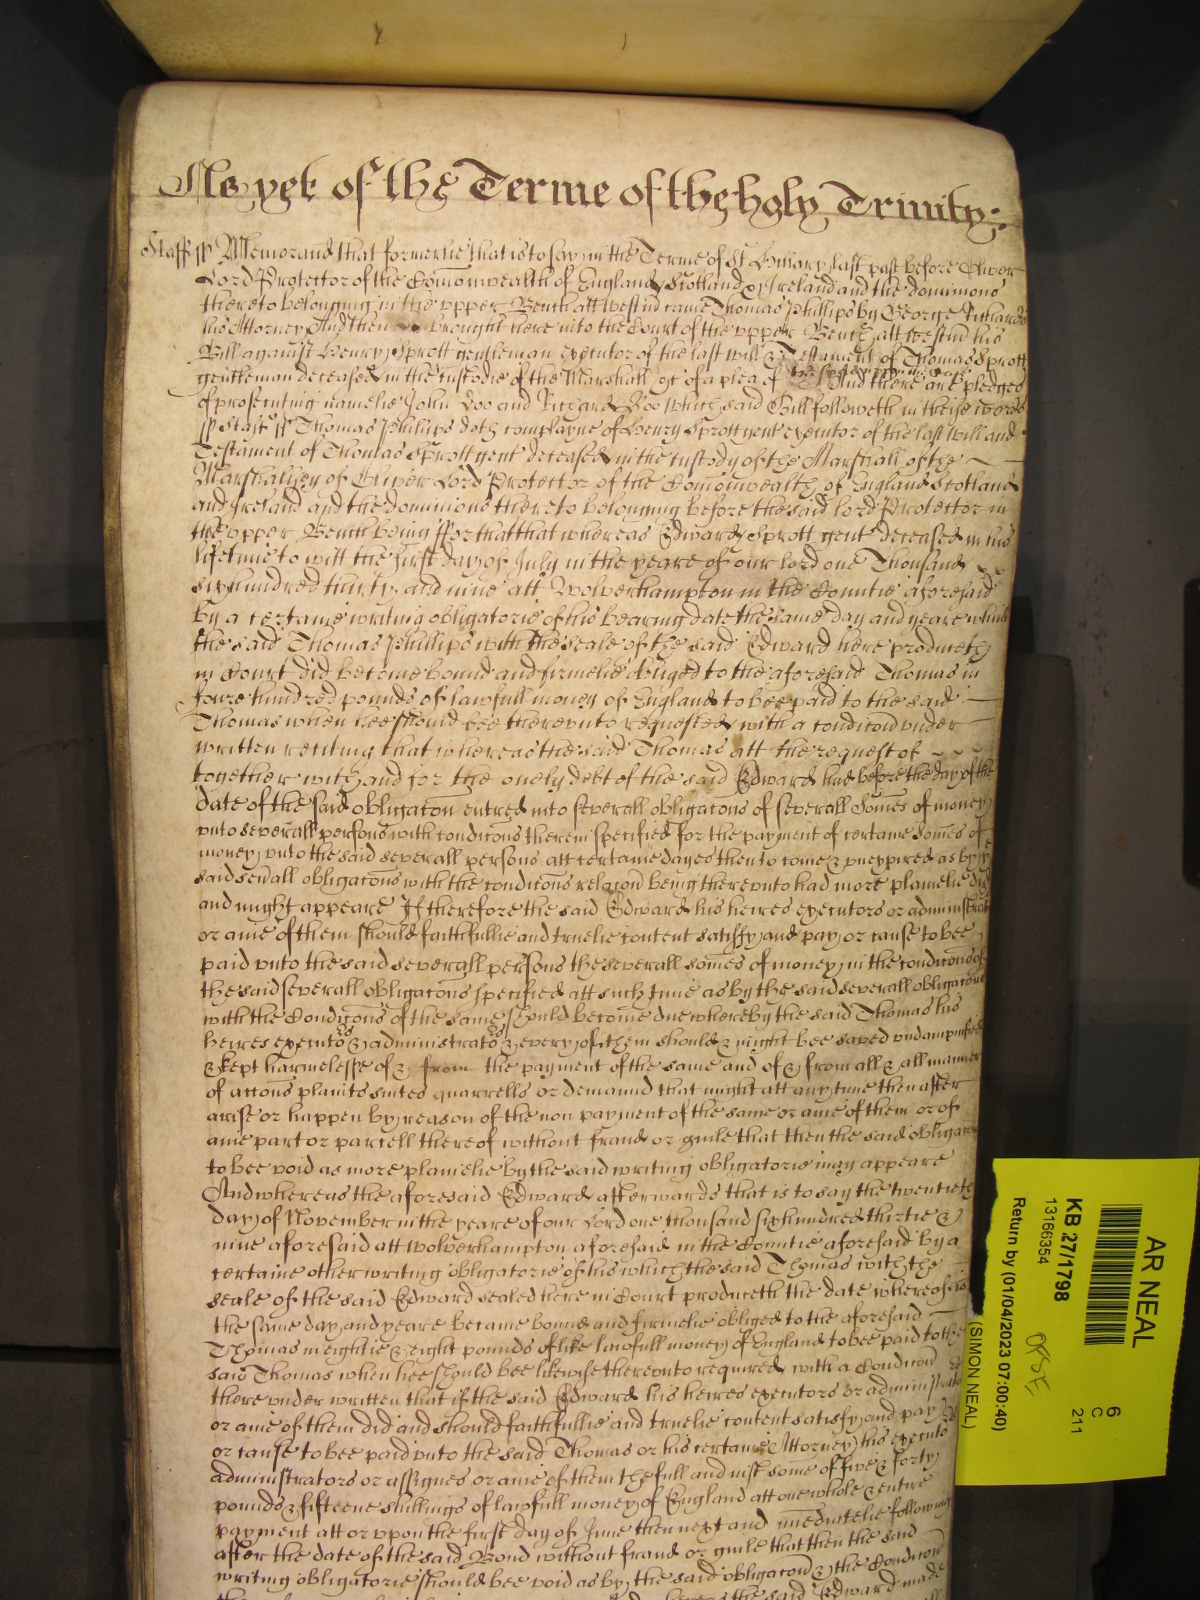 As yet of the Terme of the holy Trinity:
Staff ss Memorand that formerlie that is to say in the Terme of St Hillary last past before Oliver
Lord Protector of the Comonwealth of England Scotland & Ireland and the dominions
thereto belonging in the upper Bench att Westm came Thomas Phillips by George
his Attorney And then brought here into the Court of the upper Bench att Westm his
Bill against Henry Sprott gentleman executor of the last will & Testament of Thomas Sprott
gentleman deceased in the custodie of the Marshall &c of a plea of And there are pledges
of prosecuting namelie John Doo and Richard Roo which said Bill followeth in theise words
ss Staff ss Thomas Phillips doth complayne of Henry Sprott gent executor of the last will and
Testament of Thomas Sprott gent deceased in the custody of the Marshall of the
Marshallsey of Oliver Lord Protector of the Comonwealth of England Scotland
and Ireland and the dominions thereto belonging before the said lord Protector in
the upper Bench being ffor that that whereas Edward Sprott gent deceased in his
lifetime to witt the first day of July in the yeare of our lord one Thousand
sixhundred thirty and nine att Wolverhampton in the Countie aforesaid
by a certaine writing obligatorie of his bearing date the same day and yeare which
the said Thomas Phillips with the seale of the said Edward here produceth
in Court did become bound and firmelie obliged to the aforesaid Thomas in
foure hundred pounds of lawfull money of England to bee paid to the said
Thomas when hee should bee thereunto requested with a condicon under
written reciting that whereas the said Thomas att the request of
together with and for the onely debt of the said Edward had before the day of the
date of the said obligacon entred into severall obligacons of severall somes of money
unto severall persons with condicons therein specified for the payment of certaine somes of
money unto the said severall persons att certaine dayes then to come & unexpired as by ye
said sevall obligacons with the condicons relacon being thereunto had more plainelie did
and might appeare If therefore the said Edward his heires executors or administrat
or anie of them should faithfullie and truelie content satisfy and pay or cause to bee
paid unto the said severall persons the severall somes of money in the condicons of
the said severall obligacons specified att such time as by the said severall obligacons
with the Condicons of the same should become due whereby the said Thomas his
heires executors & administrators & every of them should & might bee saved undampnified
& kept harmelesse of & from the payment of the same and of & from all & all manner
of accons plaints suites quarrells or demaund that might att any time then after
arise or happen by reason of the non payment of the same or anie of them or of
anie part or parcell thereof without fraud or guile that then the said obligacon
to bee void as more plainelie by the said writing obligatorie may appeare
And whereas the aforesaid Edward afterwards that is to say the twentieth
day of November in the yeare of our Lord one thousand sixhundred thirtie &
nine aforesaid att Wolverhampton aforesaid in the Countie aforesaid by a
certaine other writing obligatorie of his which the said Thomas with the
seale of the said Edward sealed here in Court produceth the date whereof is
the same day and yeare became bound and firmelie obliged to the aforesaid
Thomas in eightie & eight pounds of like lawfull money of England to bee paid to the
said Thomas when hee should bee likewise thereunto required with a Condicon
there under written that if the said Edward his heires executors or administrators
or anie of them did and should faithfullie and truelie content satisfy and pay
or cause to bee paid unto the said Thomas or his certaine Attorney his executo
administrators or assignes or anie of them the full and iust some of five & forty
pounds & fifteene shillings of lawfull money of England att one whole & entire
payment att or upon the first day of June then next and imediatelie following
after the date of the said Bond without fraud or guile that then the said
writing obligatorie should bee void as by the said obligacon & the Condicon
the said Edward made
AR NEAL
KB 27/1798
13166354
Return by (01/04/2023 07:00:40)
(SIMON NEAL)
6
C
211